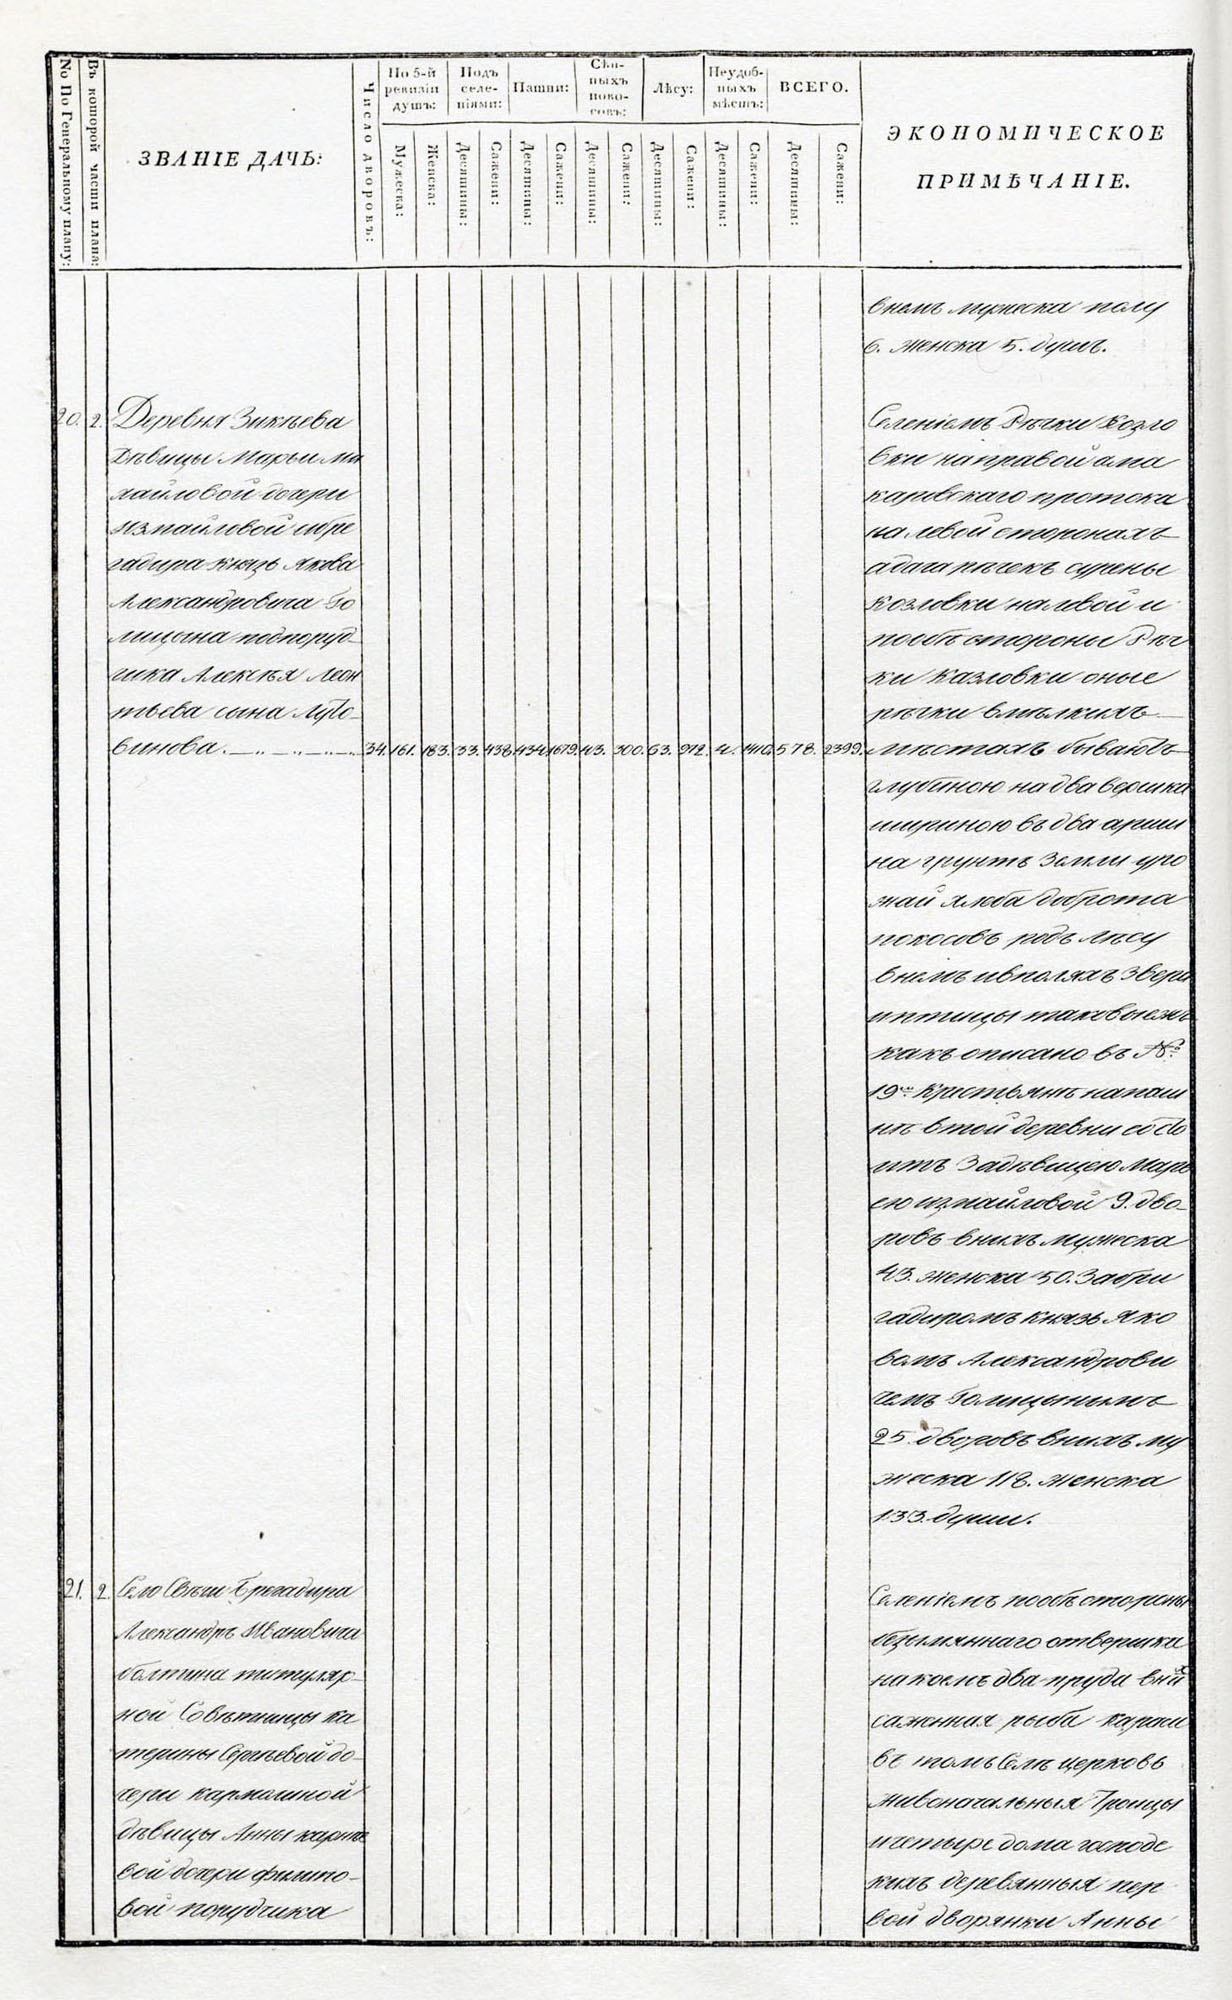 No По Генеральному плану:
Въ которой части плана:
ЗВАНІЕ ДАЧЬ:
Число дворовъ:
По 5-й ревизіи душъ:
Мужеска:
Женска:
Подъ селеніями:
Десятины:
Сажени:
Пашни:
Десятины:
Сажени:
Сѣнныхъ покосовъ:
Десятины:
Сажени:
Лѣсу:
Десятины:
Сажени:
Неудобныхъ мѣстъ:
Десятины:
Сажени:
ВСЕГО.
Десятины:
Сажени:
ЭКОНОМИЧЕСКОЕ
ПРИМѢЧАНІЕ.
вномъ мужеска полу
6. женска 5. душъ.
20. 2. Деревня Зикѣева
Дѣвицы Марьи Ми
хайловой дочери
измайловой ибри
гадира князь Якова
Александровича Го
лицына подпоруч
чика Алексѣя Леон
тьева сына Луто-
винова. 34. 161. 183. 33. 438. 434. 1679. 43. 300. 63. 972. 4. 1410. 578. 2399.
Селеніемъ Рѣчки Козло
вки направой ама
каревскаго протока
налевой сторонахъ
адача рѣчекъ сурены
козловки налевой и
пообѣ стороны Рѣч
ки Казловки оные
рѣчки вмѣлкихъ
мѣстахъ бываютъ
глубиною на два вершка
шириною въ два арши
на грунтъ земли уро
жай хлѣба доброта
покосовъ родъ лѣсу
внемъ ивполяхъ звери
иптицы таковыежъ
какъ описано въ №
19мъ Крестьянъ напаш
нѣ втой деревни состо
итъ Задѣвицею Марь
ею измайловой 9. дво-
ровъ внихъ мужеска
43. женска 50. Забри
гадиромъ князь Яко
вомъ Александрови
чемъ Голицынымъ
25. дворовъ внихъ му
жеска 118. женска
133. души.
21. 2. Село Свѣи Брегадира
Александръ Ивановича
болтина титуляр-
ной Совѣтницы ка
терины Сергѣевой до-
чери кармалиной
дѣвицы Анны карпо
вой дочери филипо-
вой порудчика
Селеніемъ пообѣ стороны
безымяннаго отвершка
накоемъ два пруда вних
саженая рыба караси
въ томъ Селѣ церковь
живоначальныя Троицы
ичетыре дома господс
кихъ деревянныя пер
вой дворянки Анны